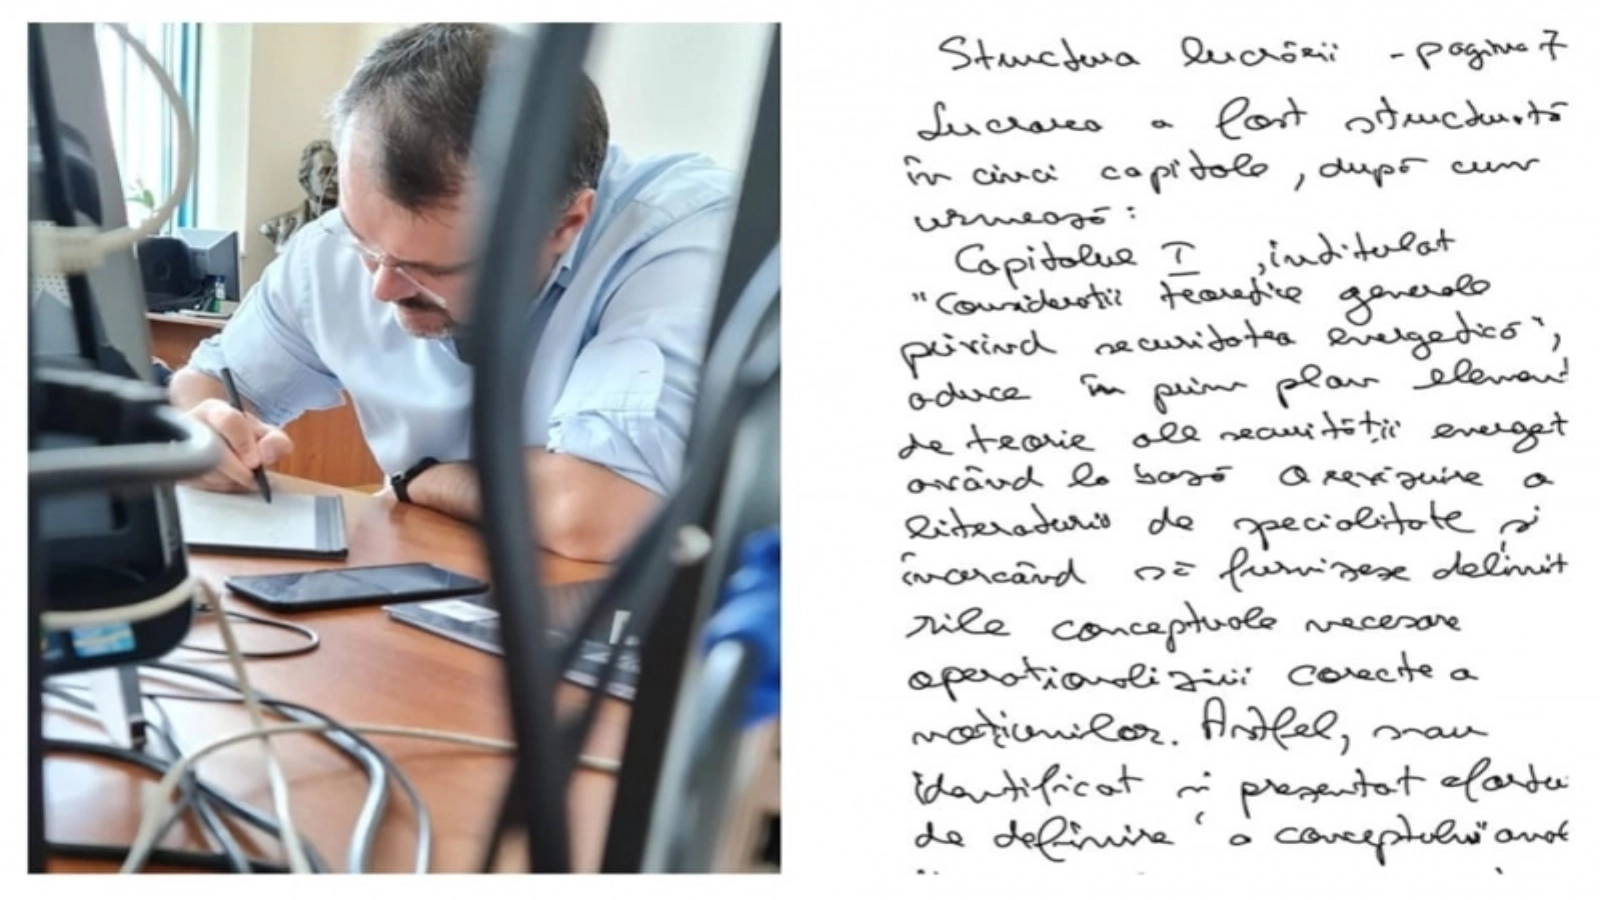 Structura lucrării - pagina 7
Lucrarea a fost structurată
în cinci capitole, după cum
urmează:
Capitolul I, intitulat
"Considerații teoretice generale
privind securitatea energetică",
aduce în prim plan element
de teorie ale securității energet
având la bază o revizuire a
literaturii de specialitate și
încercând să furnizeze delimit
rile conceptuale necesare
operaționalizării corecte a
noțiunilor. Astfel, s-au
identificat și prezentat efortu
de definire a conceptului